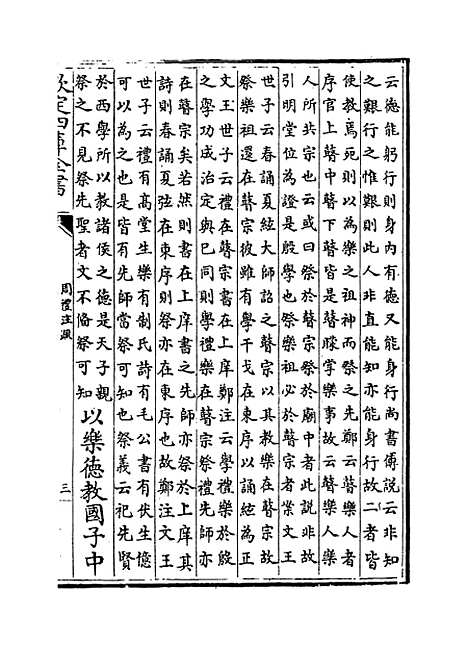 云德能躬行則身内有德又能身行尚書傅說云非知
之艱行之惟艱則此人非直能知亦能身行故二者皆
使教焉死則以為樂之祖神而祭之先鄭云瞽樂人者
序官上瞽中瞽下瞽皆是瞽矇掌樂事故云瞽樂人樂
人所共宗也云或曰祭於瞽宗祭於廟中者此說非故
引明堂位為證是殷學也祭樂祖必於瞽宗者案文王
世子云春誦夏絃大師詔之瞽宗以其教樂在瞽宗故
祭樂祖還在瞽宗彼雖有學干戈在東序以誦絃為正
文王世子云禮在瞽宗書在上庠鄭注云學禮樂於殷
之學功成治定與已同則學禮樂在瞽宗祭禮先師亦
在瞽宗矣若然則書在上庠書之先師亦祭於上庠其
詩則春誦夏弦在東序則祭亦在東序也故鄭注文王
世子云禮有髙堂生樂有制氏詩有毛公書有伏生億
可以為之也是皆有先師當祭可知也祭義云祀先賢
於西學所以教諸侯之德是天子親
祭之不見祭先聖者文不備祭可知以樂德教國子中
欽定四庫全書
周禮注疏
三